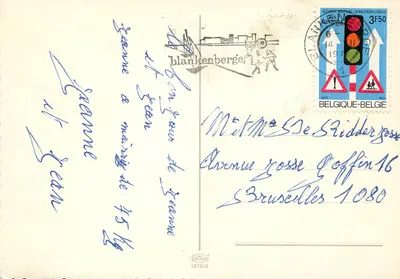 Un Bonjour de Jeanne
et Jean
Jeanne a maigri de 75 Kg
Jeanne
et Jean
blankenberge
BLANKENBERGE
6
14
197
1
3F50
BELGIQUE-BELGIE
Mr et Me De Ridder Josse
Avenue Josse Goffin 16
Bruxelles 1080